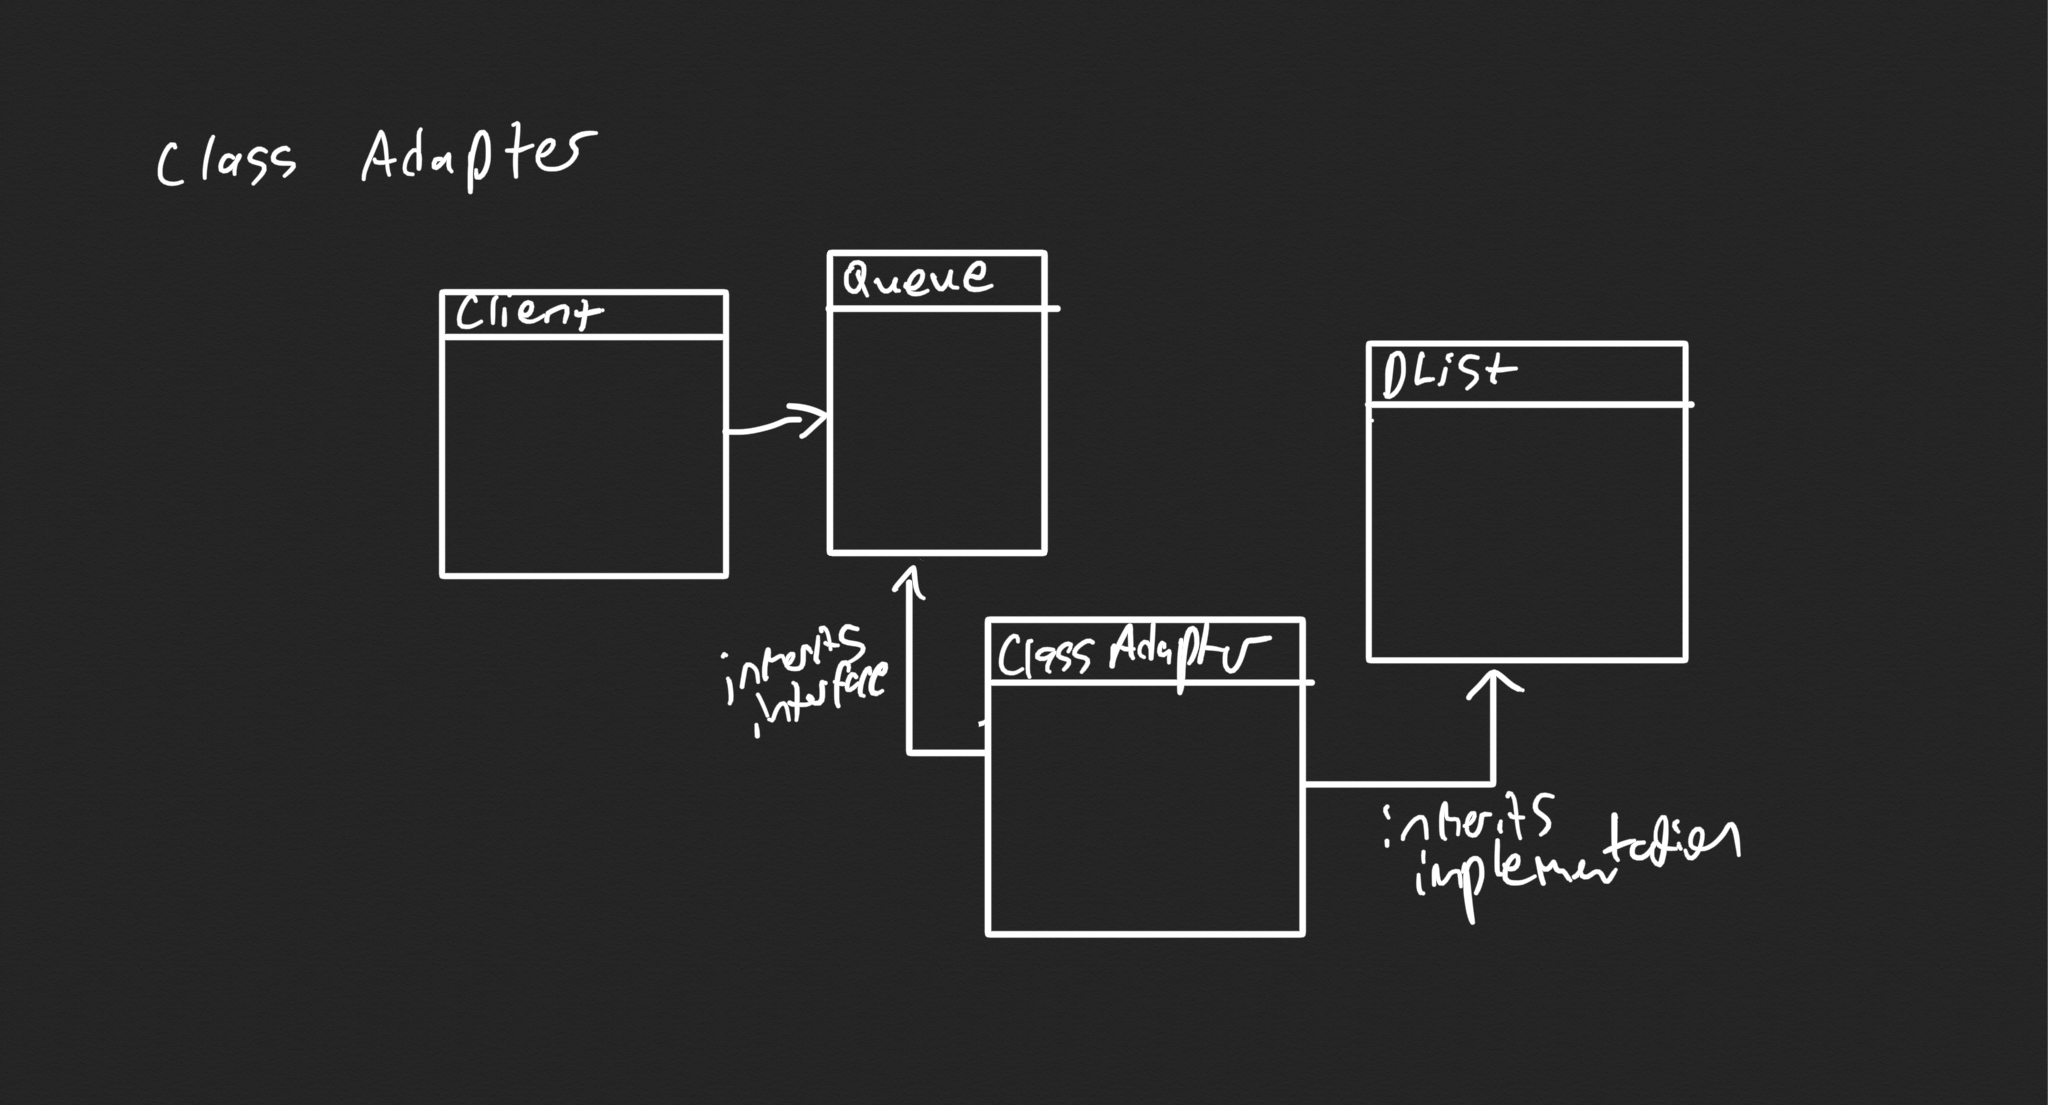 Class Adapter
Client
Queue
DList
inherits
interface
Class Adapter
inherits
implementation